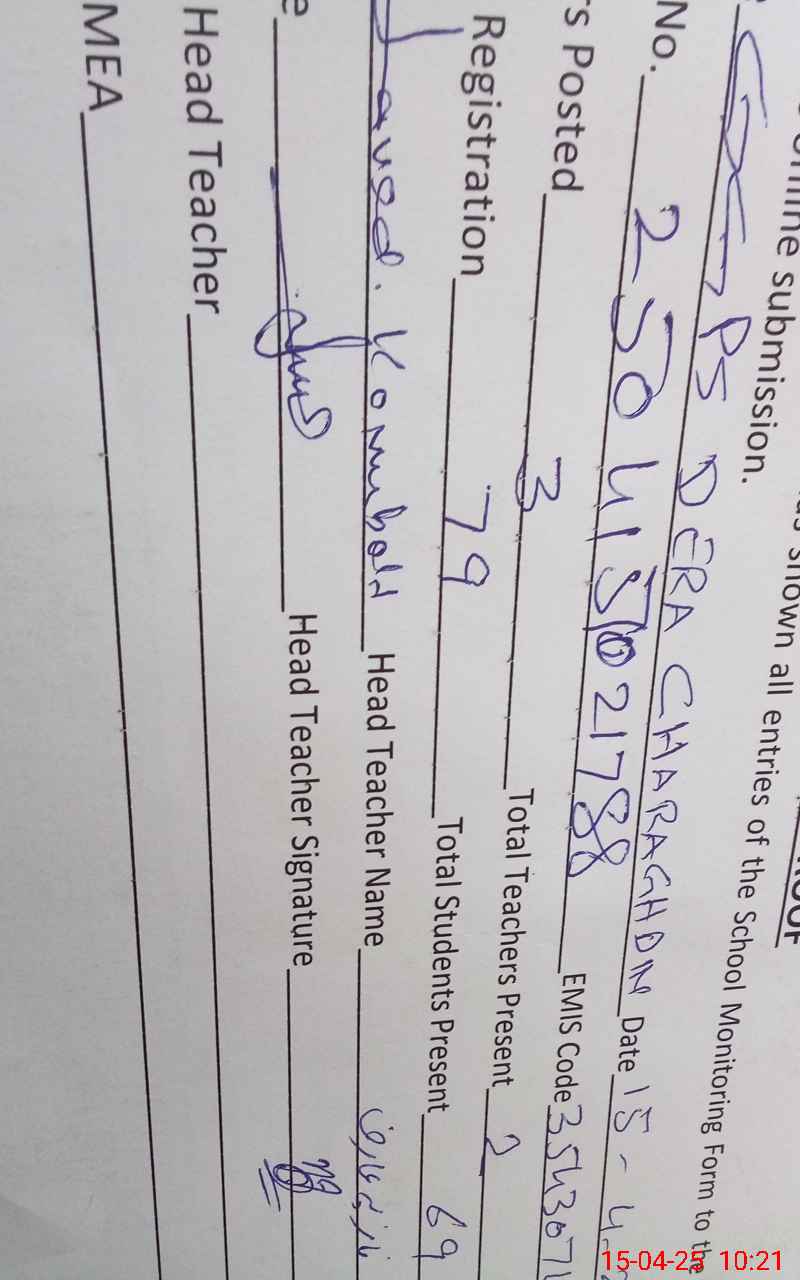 online submission.
as shown all entries of the School Monitoring Form to the
GGPS DERA CHARAGHDIN Date 15-4-
No. 250415021788 EMIS Code 3543071
s Posted 3 Total Teachers Present 2
Registration 79 Total Students Present 69
Javed. Head Teacher Name
e Head Teacher Signature
Head Teacher
MEA
15-04-25 10:21